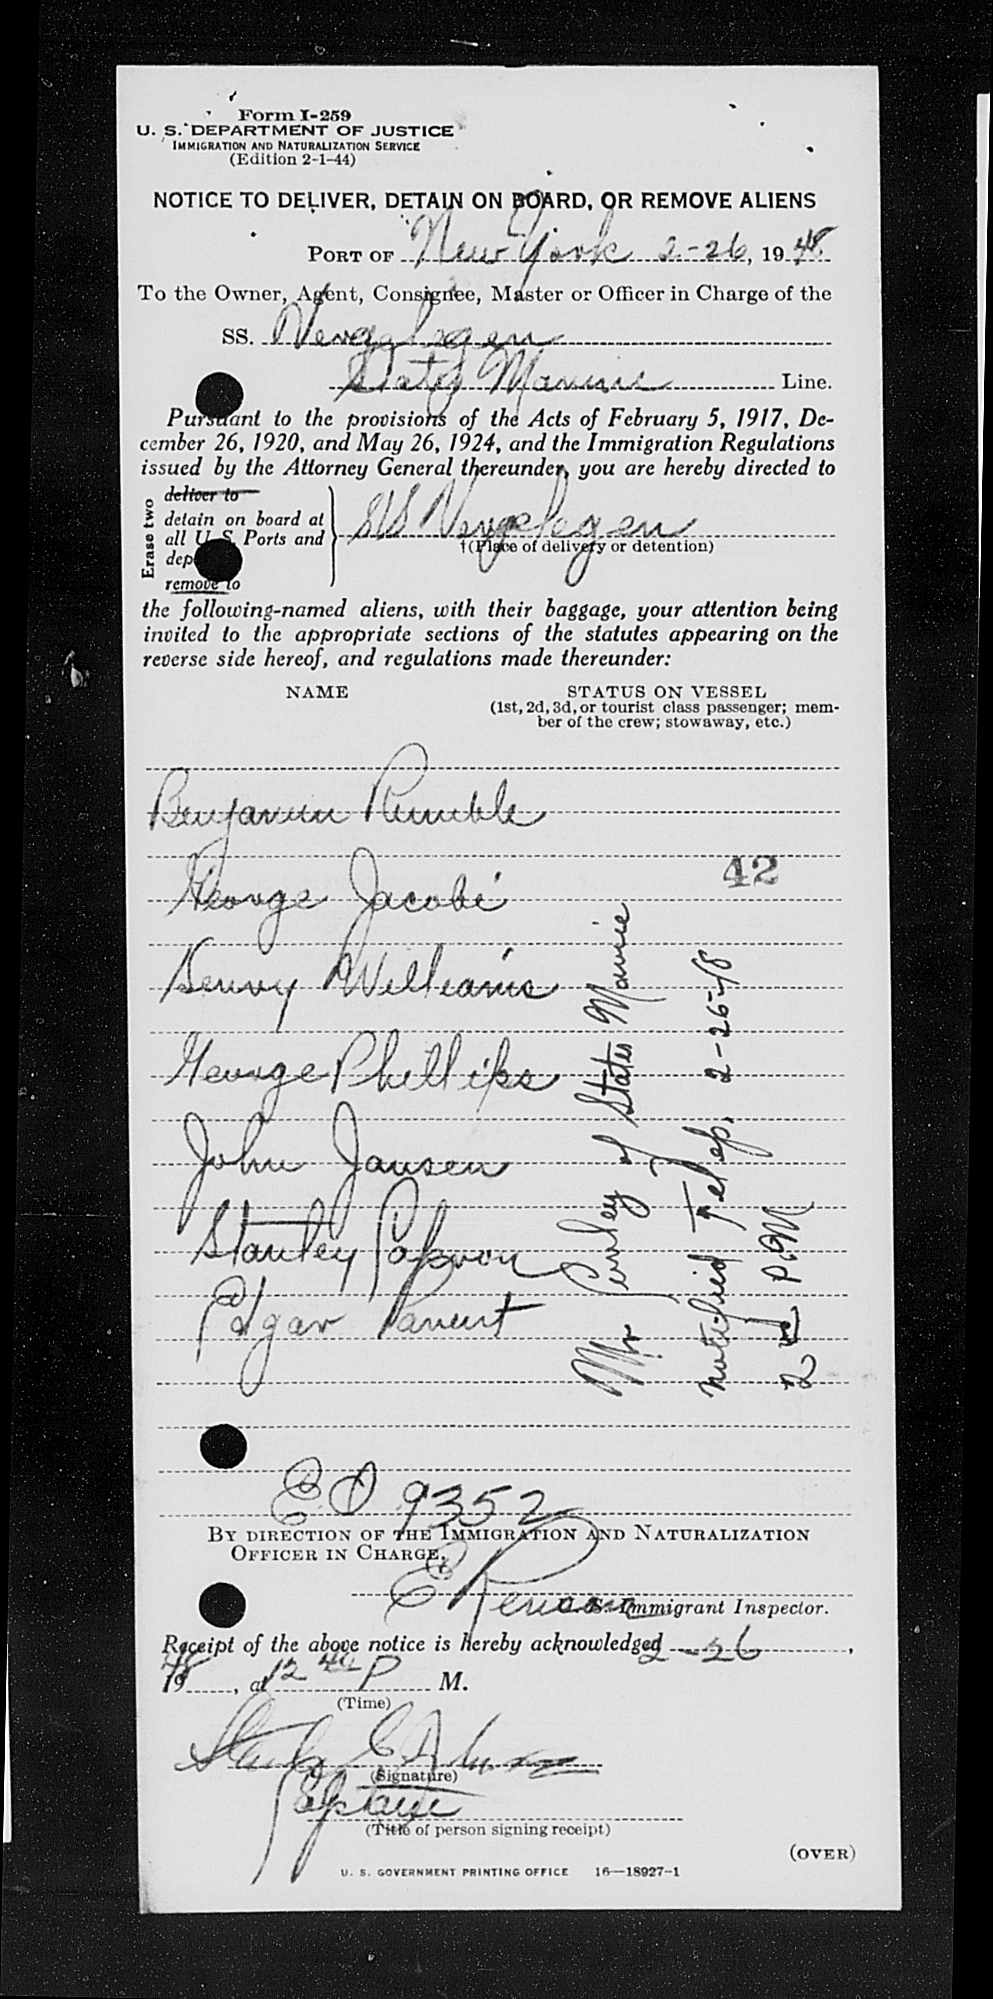 Form I-259
U. S. DEPARTMENT OF JUSTICE
IMMIGRATION AND NATURALIZATION SERVICE
(Edition 2-1-44)
NOTICE TO DELIVER, DETAIN ON BOARD, OR REMOVE ALIENS
PORT OF New York 2-26, 19 48
To the Owner, Agent, Consignee, Master or Officer in Charge of the
SS. Vergelegen
States Marine Line.
Pursuant to the provisions of the Acts of February 5, 1917, De-
cember 26, 1920, and May 26, 1924, and the Immigration Regulations
issued by the Attorney General thereunder, you are hereby directed to
Erase two
deliver to
detain on board at
all U. S. Ports and
dep
remove to
SS Vergelegen
†(Place of delivery or detention)
the following-named aliens, with their baggage, your attention being
invited to the appropriate sections of the statutes appearing on the
reverse side hereof, and regulations made thereunder:
NAME STATUS ON VESSEL
(1st, 2d, 3d, or tourist class passenger; mem-
ber of the crew; stowaway, etc.)
Benjamin Rumble
42
George Jacobi
Benny Williams
George Phillips
John Jansen
Stanley
Edgar Parent
Mr Curley of States Marine
notified Telep. 2-26-48
2 P.M
EO 9352
BY DIRECTION OF THE IMMIGRATION AND NATURALIZATION
OFFICER IN CHARGE,
E
Immigrant Inspector.
Receipt of the above notice is hereby acknowledged 2-26,
48
19, at 12 40 P M.
(Time)
(Signature)
Captain
(Title of person signing receipt)
(OVER)
U. S. GOVERNMENT PRINTING OFFICE 16—18927-1